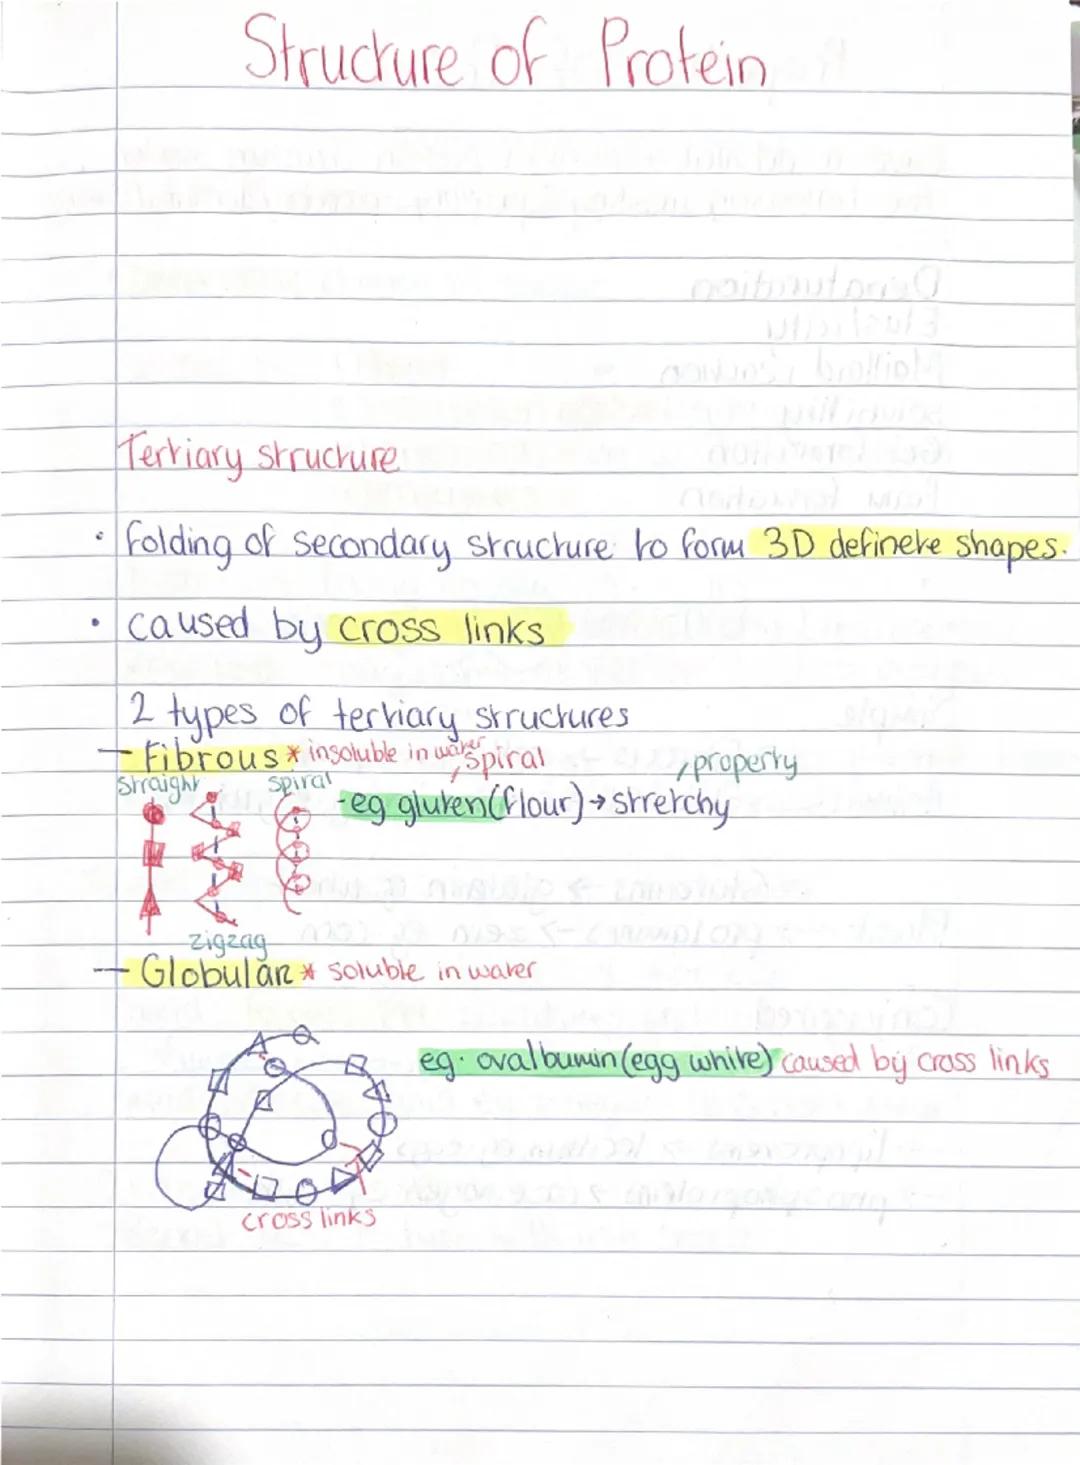 Structure of Protein
Tertiary structure
• folding of secondary structure to form 3D definete shapes.
• caused by cross links
2 types of tertiary structures
– Fibrous * insoluble in water, spiral
, property
straight
spiral
- eg gluten (flour) → stretchy
zigzag
– Globular * soluble in water
eg. ovalbumin (egg white) caused by cross links
cross links